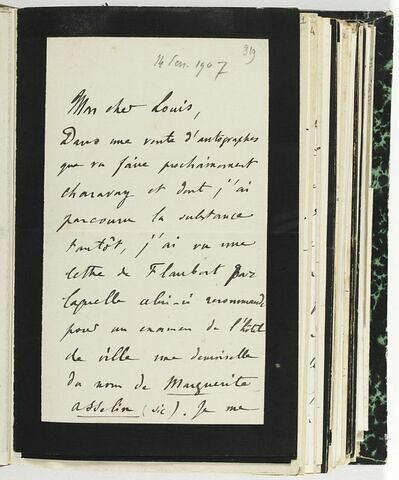 319
14 Fev. 1907
Mon cher Louis,
Dans une vente d'autographes
que va faire prochainement
Charavay et dont j'ai
parcouru la substance
tantôt, j'ai vu une
lettre de Flaubert par
laquelle celui-ci recommande
pour un examen de l'Hôtel
de ville une demoiselle
du nom de Marguerite
Asselin (sic). Je me